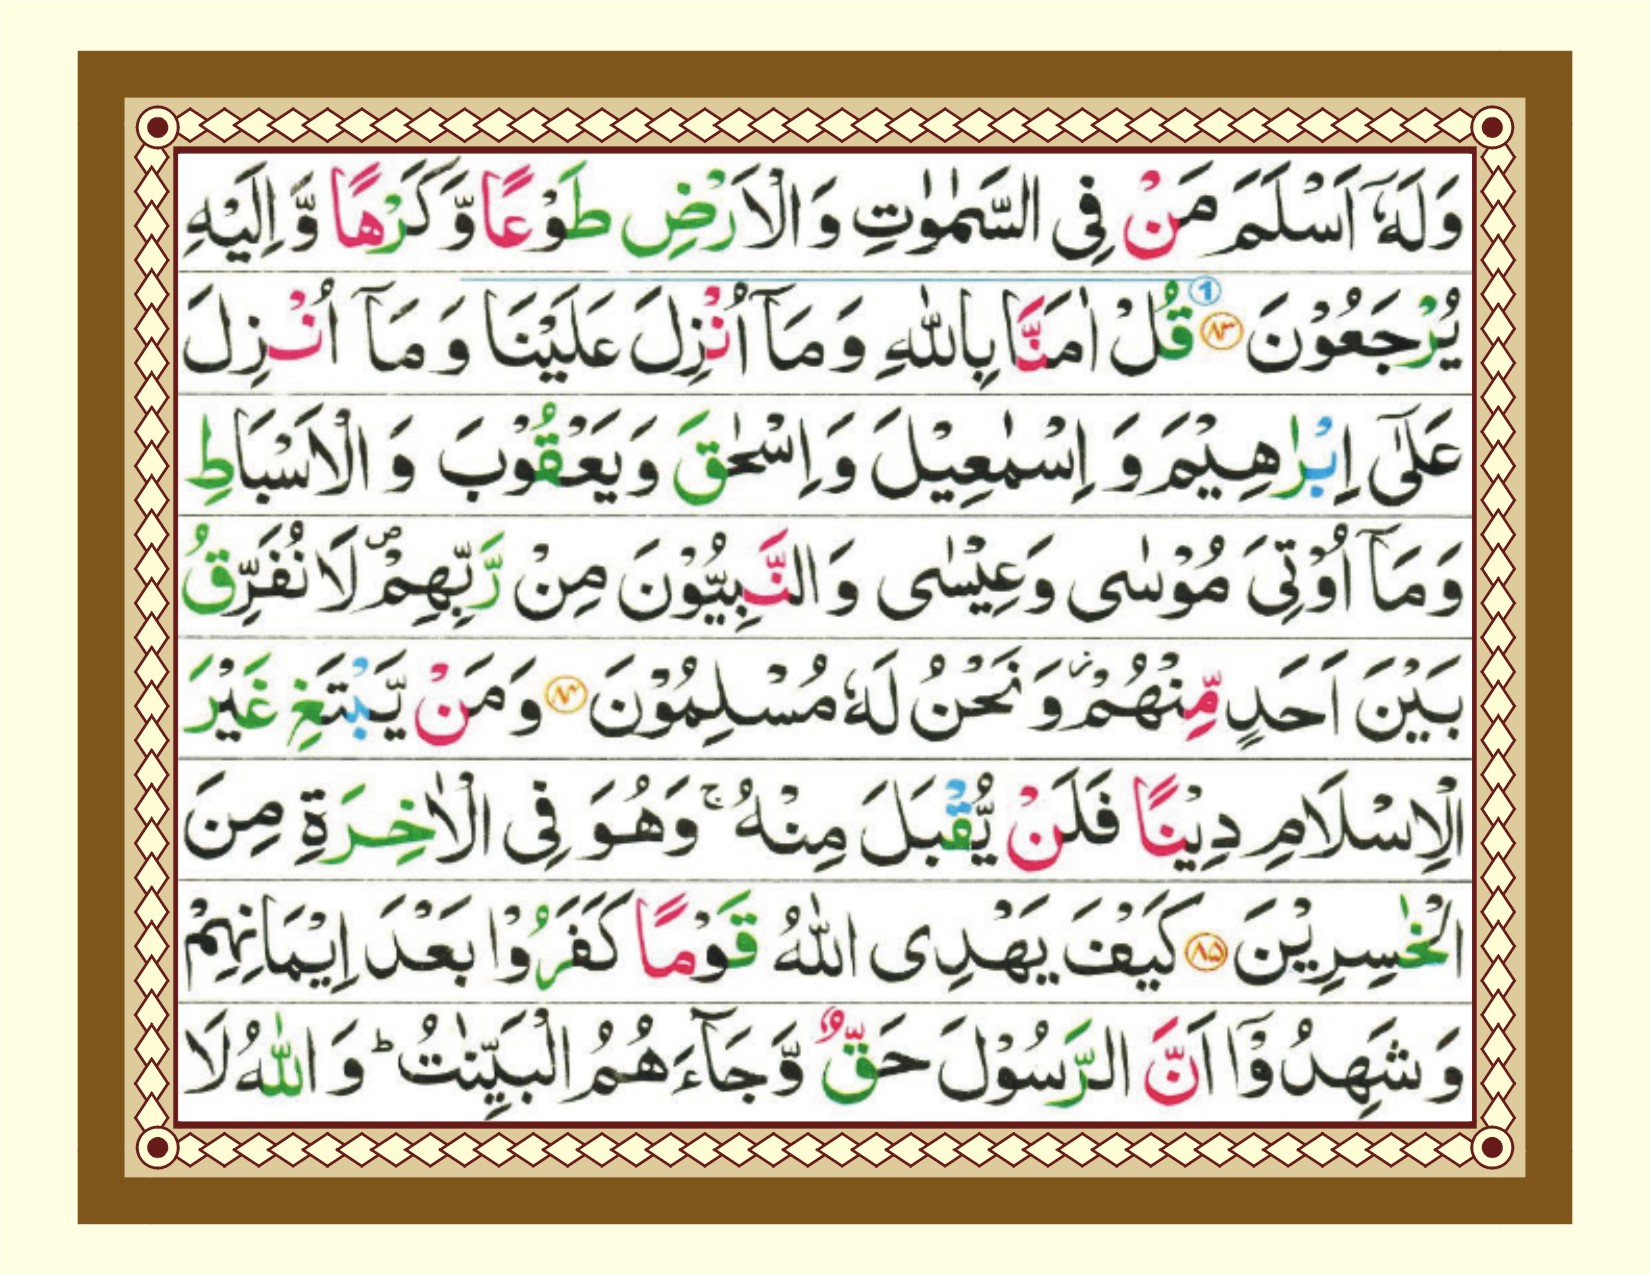 وَلَهٗۤ اَسْلَمَ مَنْ فِی السَّمٰوٰتِ وَ الْاَرْضِ طَوْعًا وَّ كَرْهًا وَّ اِلَیْهِ
یُرْجَعُوْنَ ﴿۸۳﴾ 1 قُلْ اٰمَنَّا بِاللّٰهِ وَ مَاۤ اُنْزِلَ عَلَیْنَا وَ مَاۤ اُنْزِلَ
عَلٰۤی اِبْرٰهِیْمَ وَ اِسْمٰعِیْلَ وَ اِسْحٰقَ وَ یَعْقُوْبَ وَ الْاَسْبَاطِ
وَ مَاۤ اُوْتِیَ مُوْسٰی وَ عِیْسٰی وَ النَّبِیُّوْنَ مِنْ رَّبِّهِمْ ۪ لَا نُفَرِّقُ
بَیْنَ اَحَدٍ مِّنْهُمْ ؗ وَ نَحْنُ لَهٗ مُسْلِمُوْنَ ﴿۸۴﴾ وَ مَنْ یَّبْتَغِ غَیْرَ
الْاِسْلَامِ دِیْنًا فَلَنْ یُّقْبَلَ مِنْهُ ۚ وَ هُوَ فِی الْاٰخِرَةِ مِنَ
الْخٰسِرِیْنَ ﴿۸۵﴾ كَیْفَ یَهْدِی اللّٰهُ قَوْمًا كَفَرُوْا بَعْدَ اِیْمَانِهِمْ
وَ شَهِدُوْۤا اَنَّ الرَّسُوْلَ حَقٌّ وَّ جَآءَهُمُ الْبَیِّنٰتُ ؕ وَ اللّٰهُ لَا